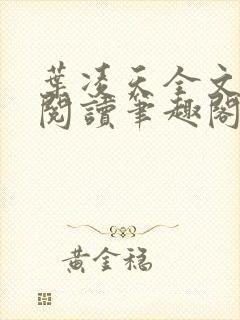 葉凌天全文
閱讀筆趣閣
黃金稳